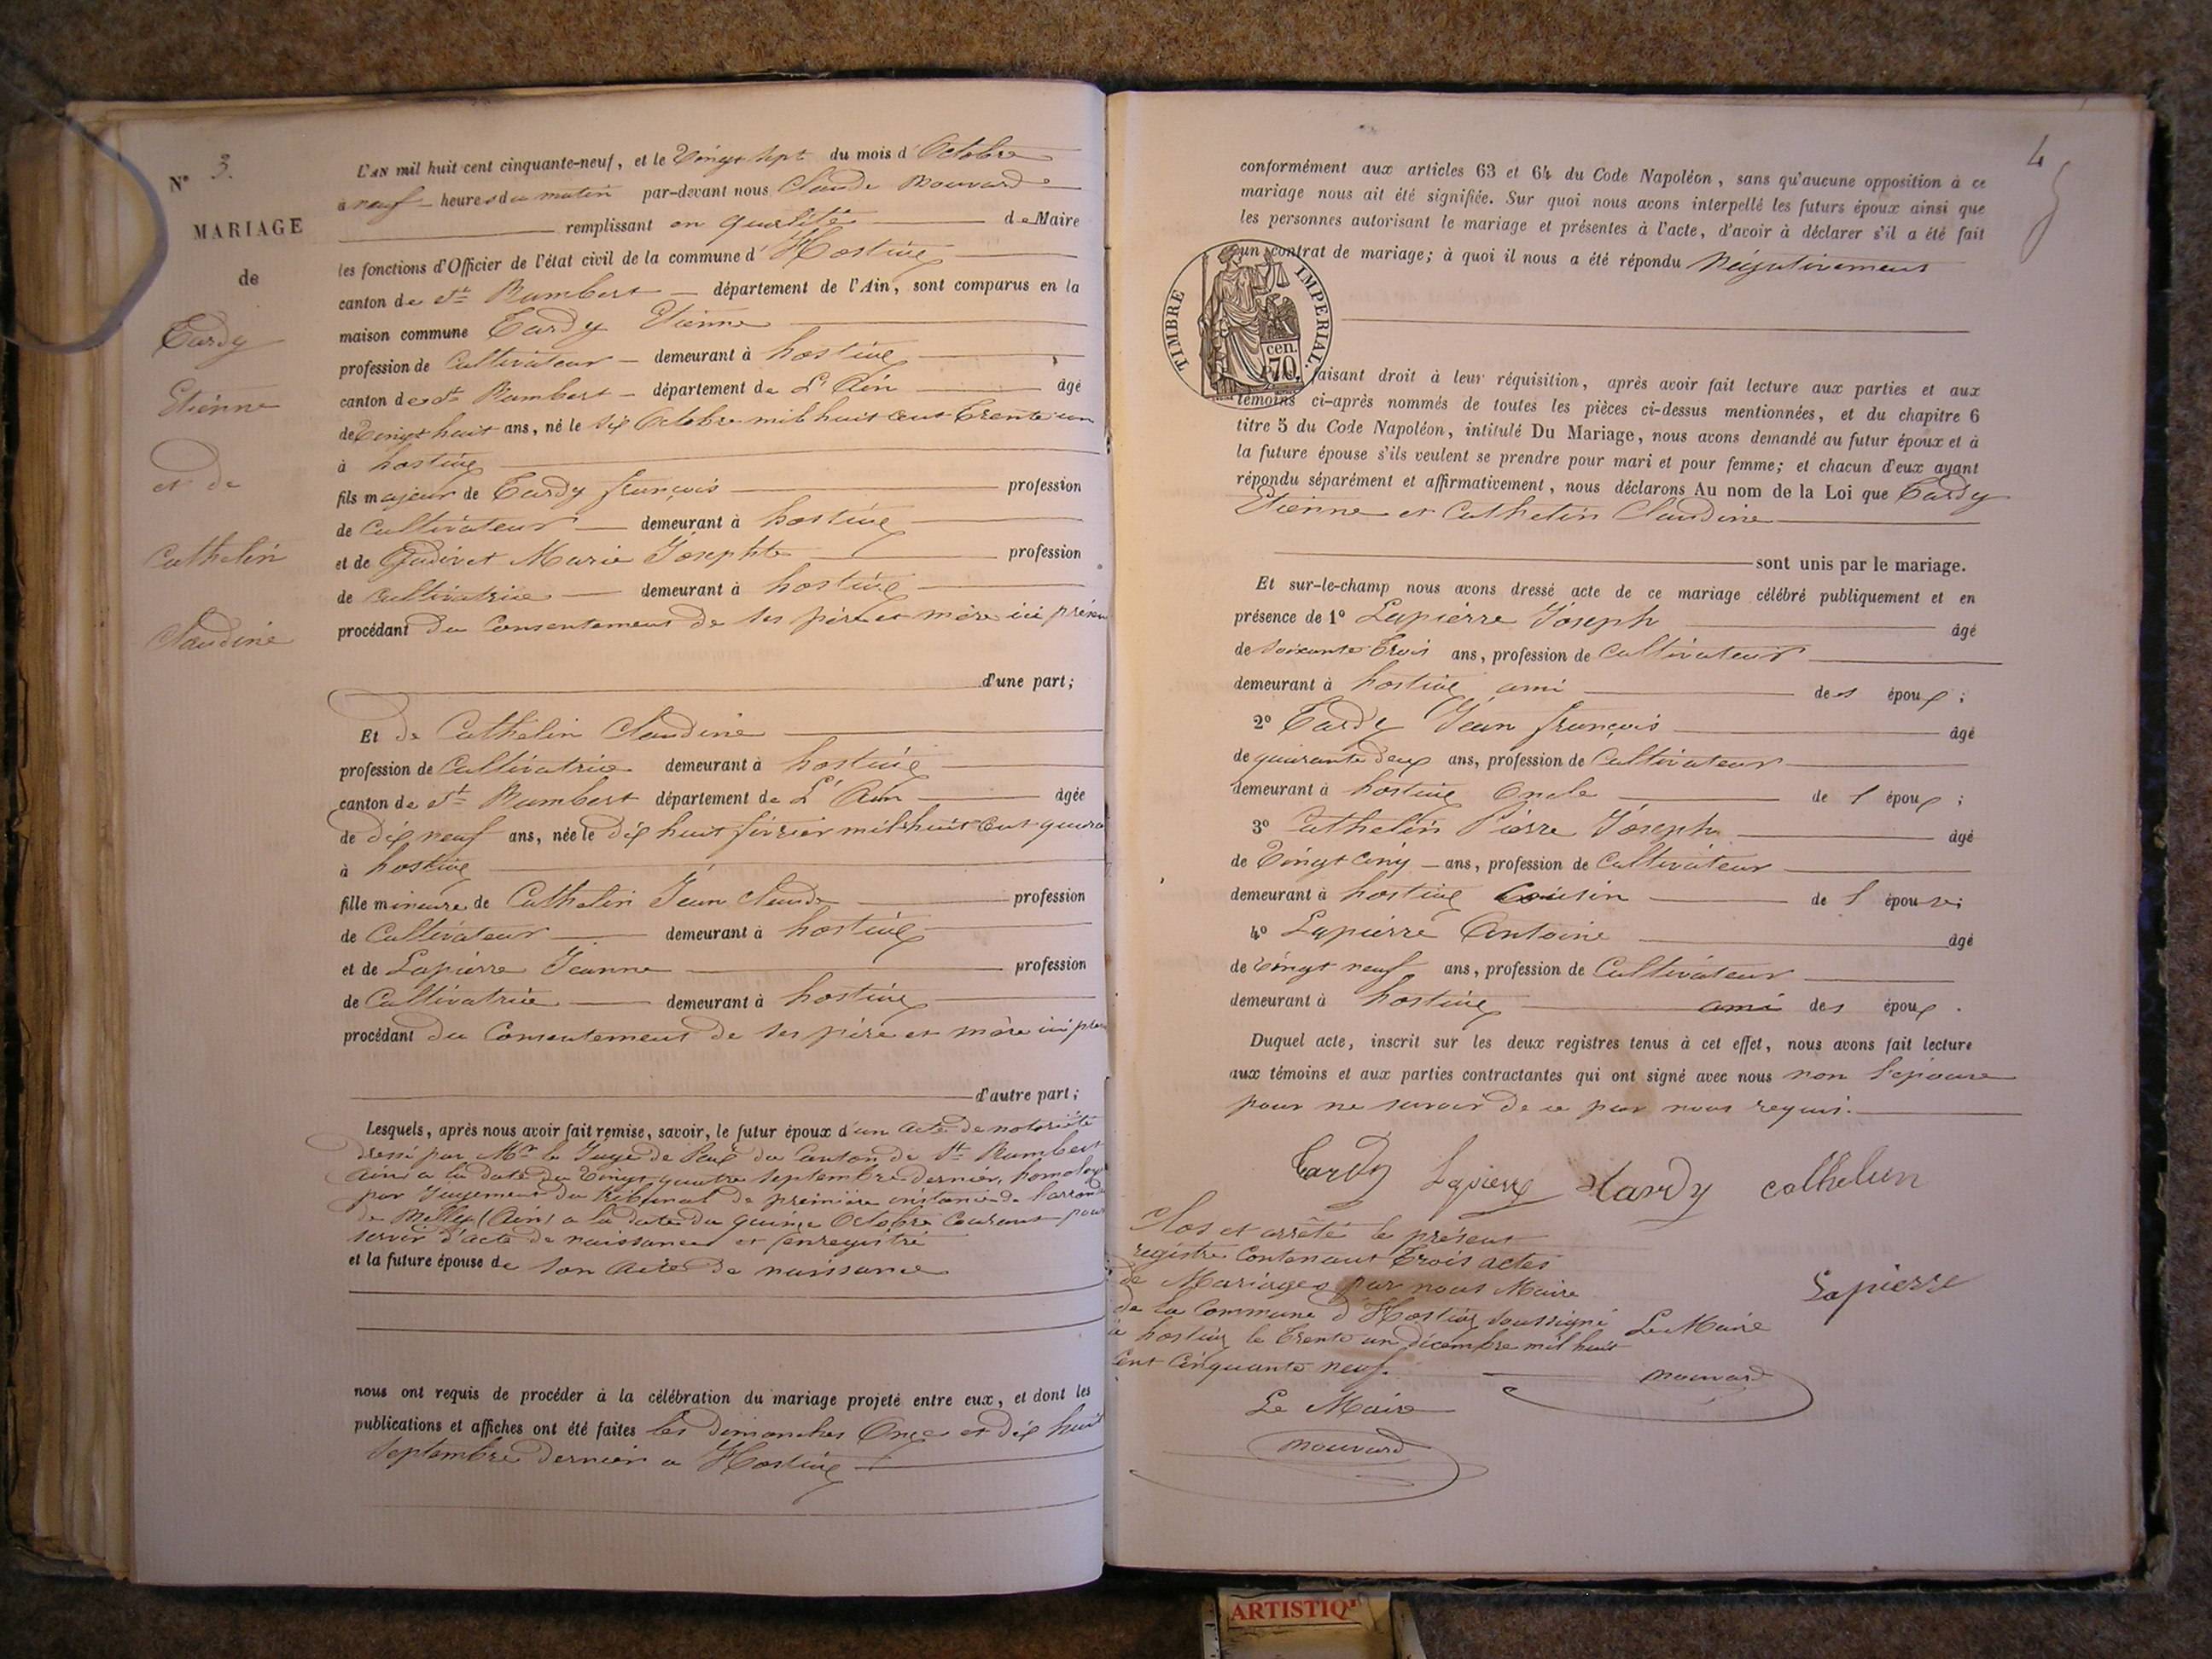 N° 3.
MARIAGE
de
Tardy
Etienne
et de
Cathelin
Claudine
L'AN mil huit cent cinquante-neuf, et le Vingt sept du mois d'Octobre
à neuf heures du matin par-devant nous Claude Mouvard
remplissant en qualité de Maire
les fonctions d'Officier de l'état civil de la commune d'Hostiaz
canton de St Rambert département de l'Ain, sont comparus en la
maison commune Tardy Etienne
profession de Cultivateur demeurant à hostiaz
canton de St Rambert département de L'Ain âgé
de Vingt huit ans, né le six Octobre mil huit cent trente un
à hostiaz
fils majeur de Tardy françois profession
de Cultivateur demeurant à hostiaz
et de Gudivet Marie Josephte profession
de cultivatrice demeurant à hostiaz
procédant du Consentement de ses père et mère ici présen
d'une part;
Et de Cathelin Claudine
profession de Cultivatrice demeurant à hostiaz
canton de St Rambert département de L'Ain âgée
de dix neuf ans, née le dix huit février mil huit cent quara
à hostiaz
fille mineure de Cathelin Jean Claude profession
de Cultivateur demeurant à hostiaz
et de Lapierre Jeanne profession
de Cultivatrice demeurant à hostiaz
procédant du Consentement de ses père et mère ici
d'autre part;
Lesquels, après nous avoir fait remise, savoir, le futur époux d'un acte de notoriété
dressé par Mr le Juge de Paix du Canton de St Rambert
(Ain) a la date du Vingt quatre septembre dernier, homologué
par Jugement du tribunal de première instance de l'arron
de Belley (Ain) a la date du quinze Octobre Courant pour
servir d'acte de naissance et enregistré
et la future épouse de son acte de naissance
nous ont requis de procéder à la célébration du mariage projeté entre eux, et dont les
publications et affiches ont été faites les dimanches Onze et dix huit
septembre dernier a Hostiaz
4
conformément aux articles 63 et 64 du Code Napoléon, sans qu'aucune opposition à ce
mariage nous ait été signifiée. Sur quoi nous avons interpellé les futurs époux ainsi que
les personnes autorisant le mariage et présentes à l'acte, d'avoir à déclarer s'il a été fait
un contrat de mariage; à quoi il nous a été répondu Négativement
TIMBRE IMPERIAL.
cen.
70
faisant droit à leur réquisition, après avoir fait lecture aux parties et aux
témoins ci-après nommés de toutes les pièces ci-dessus mentionnées, et du chapitre 6
titre 5 du Code Napoléon, intitulé Du Mariage, nous avons demandé au futur époux et à
la future épouse s'ils veulent se prendre pour mari et pour femme; et chacun d'eux ayant
répondu séparément et affirmativement, nous déclarons Au nom de la Loi que Tardy
Etienne et Cathelin Claudine
sont unis par le mariage.
Et sur-le-champ nous avons dressé acte de ce mariage célébré publiquement et en
présence de 1° Lapierre Joseph âgé
de soixante trois ans, profession de Cultivateur
demeurant à hostiaz ami des époux;
2° Tardy Jean françois âgé
de quarante deux ans, profession de Cultivateur
demeurant à hostiaz Oncle de l époux;
3° Cathelin Pierre Joseph âgé
de Vingt cinq ans, profession de Cultivateur
demeurant à hostiaz Cousin de l épouse;
4° Lapierre Antoine âgé
de Vingt neuf ans, profession de Cultivateur
demeurant à hostiaz ami des époux.
Duquel acte, inscrit sur les deux registres tenus à cet effet, nous avons fait lecture
aux témoins et aux parties contractantes qui ont signé avec nous non l'épouse
pour ne savoir de ce par nous requis.
Tardy Lapierre tardy cathelin
Lapierre
Le Maire
Mouvard
Clos et arrêté le présent
registre Contenant trois actes
de Mariages par nous Maire
de la Commune d'Hostiaz soussigné
à hostiaz le trente un décembre mil huit
Cent Cinquante neuf.
Le Maire
Mouvard
ARTISTIQ